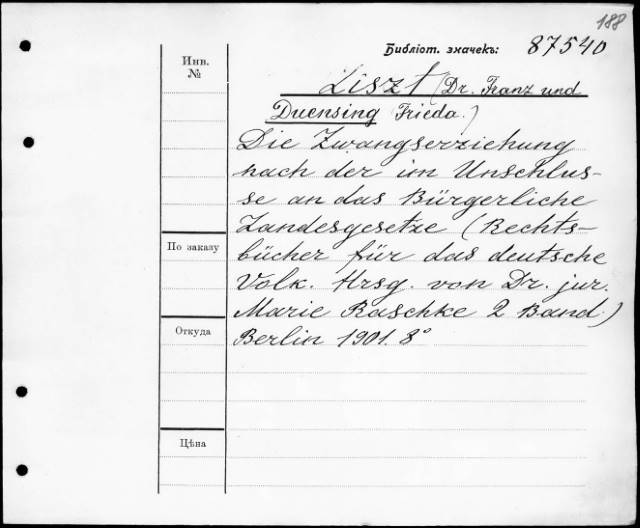 188
Библіот. значекъ: 87540
Инв.
№
Liszt (Dr. Franz und
Duensing Frieda.)
Die Zwangserziehung
nach der im Unschlus-
se an das Bürgerliche
Landesgesetze (Rechts-
bücher für das deutsche
Volk. Hrsg. von Dr. jur.
Marie Raschke 2 Band.)
Berlin 1901. 8°
По заказу
Откуда
Цѣна